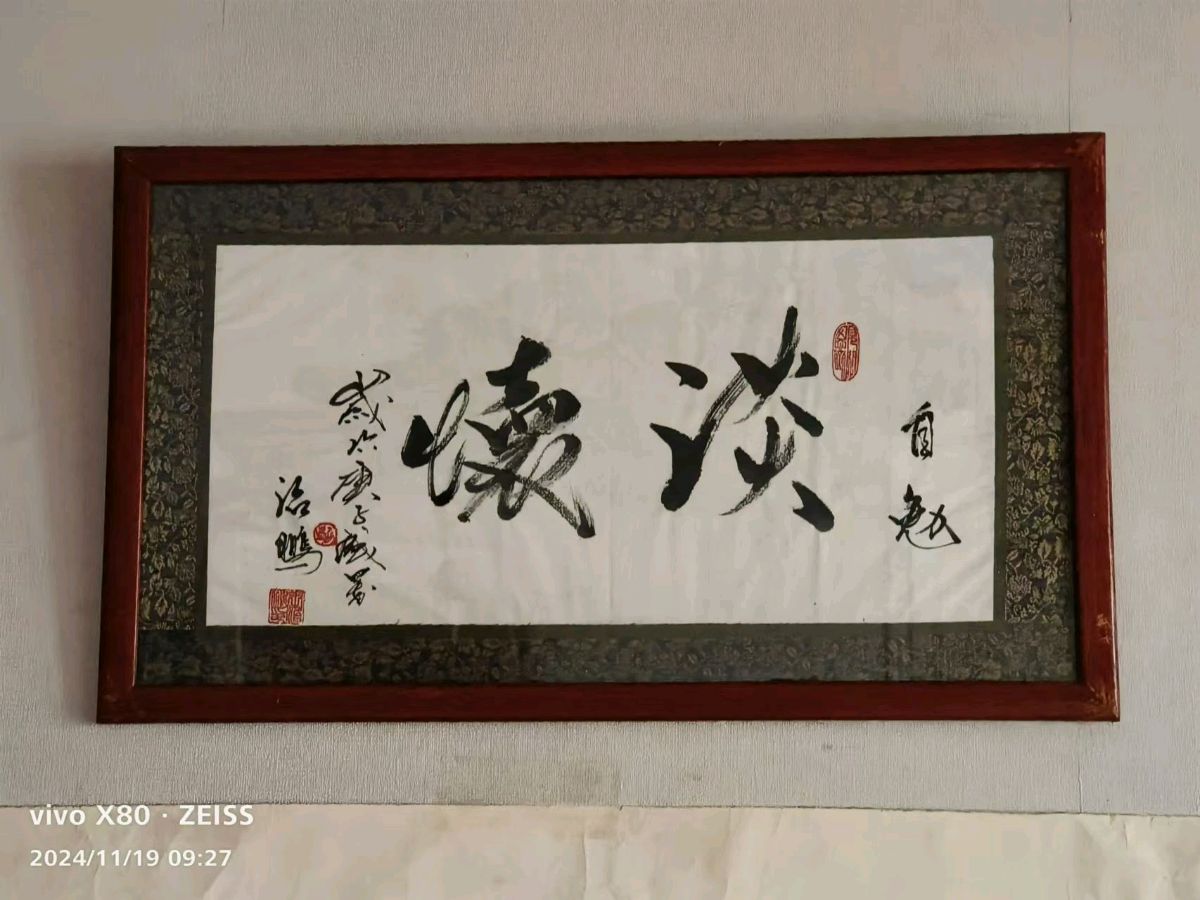 自勉
淡懷
感於庚子歲暮
治鵬
vivo X80 · ZEISS
2024/11/19 09:27